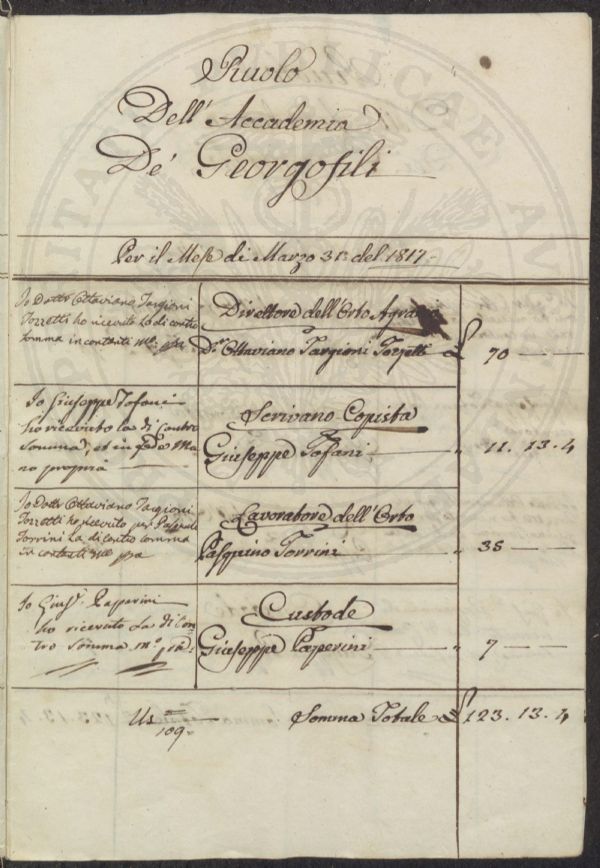 Ruolo
Dell' Accademia
De' Georgofili
Per il Mese di Marzo 31 del 1817
Io Dottr Ottaviano Targioni
Tozzetti ho ricevuto la di contro
somma in contanti mo. ppa
Direttore dell'Orto Agrario
Dr. Ottaviano Targioni Tozzetti £ 70
Io Giuseppe Tofani
ho ricevuto la di Contro
Somma, et in fede Ma
no propria
Scrivano Copista
Giuseppe Tofani " 11. 13. 4
Io Dottr Ottaviano Targioni
Tozzetti ho ricevuto per Pasquino
Torrini la di contro somma
in contanti mo ppa
Lavoratore dell'Orto
Pasquino Torrini " 35
Io Gius. Papperini
ho ricevuto la di Con
tro Somma mo. ppa
Custode
Giuseppe Paperini " 7
109
Somma Totale £ 123. 13. 4